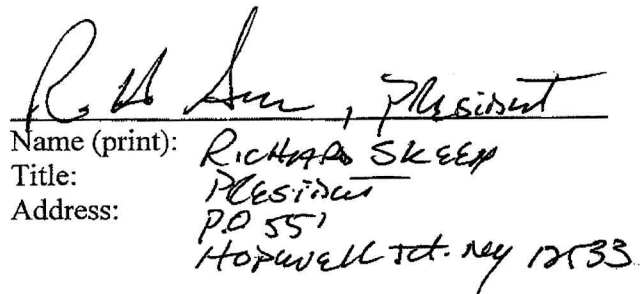 R. H. S , President
Name (print): RICHARD SKEEN
Title: President
Address: P.O 551
Hopewell Jct. Ny 12533